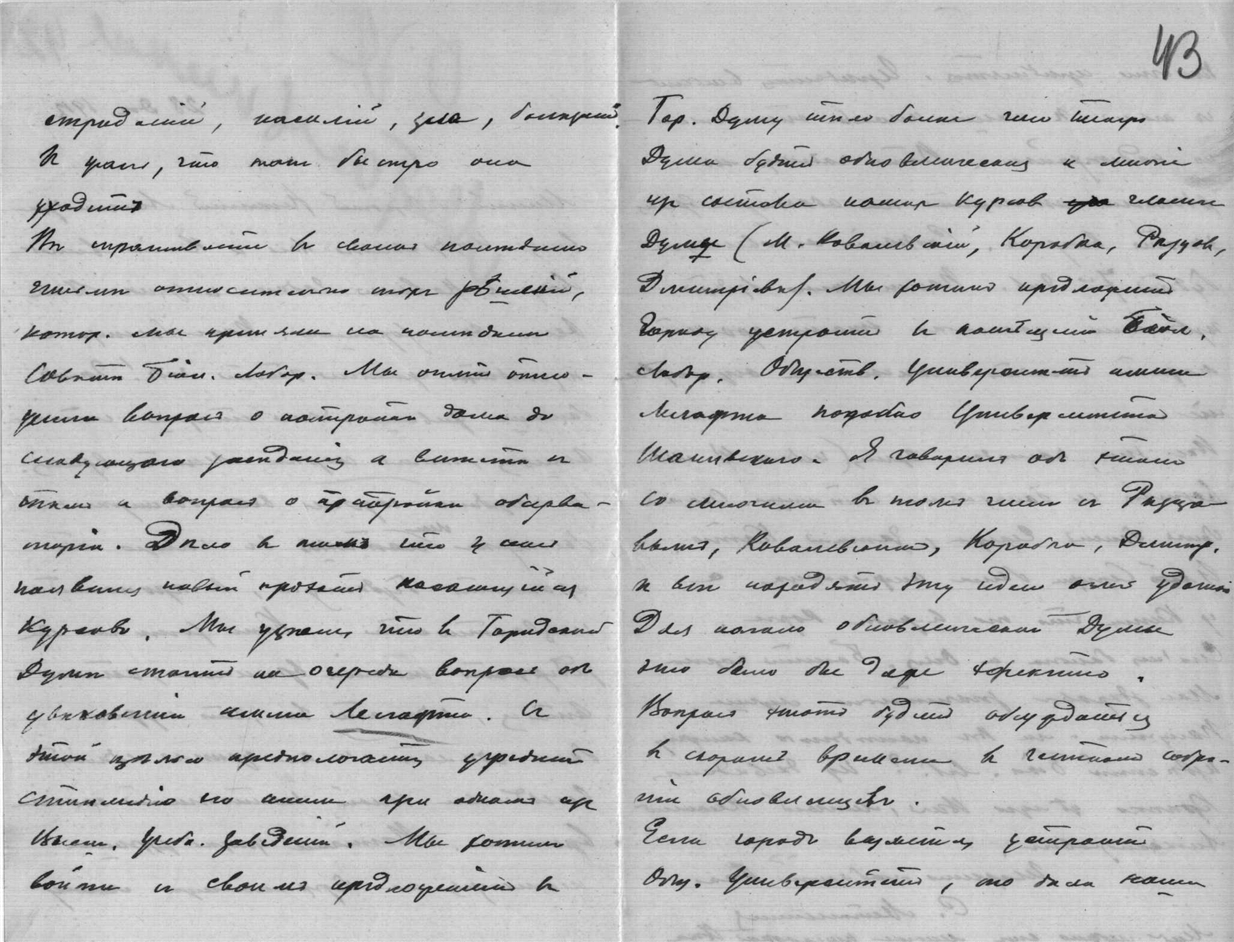 43
страданій, насилій, зла, болезней.
И жаль, что так быстро она
уходитъ
Вы спрашиваете в своемъ последнемъ
письме относительно тех решеній,
котор. мы приняли на последнем
Совете Біол. Лабор. Мы опять отло-
жили вопрос о постройке дома до
следующаго заседанія а вместе с
темъ и вопрос о постройке обсерва-
торіи. Дело в томъ что у нас
явился новый проэктъ касающійся
Курсовъ. Мы узнали что в Городской
Думе стоитъ на очереди вопрос об
увековеченіи имени Лесгафта. С
этой целью предполагаютъ учредить
стипендію его имени при одном из
Высш. Учеб. Заведеній. Мы хотим
войти с своимъ предложеніемъ в
Гор. Думу тем более что теперь
Дума будетъ обновленческая и многіе
из состава наших Курсов гласные
Думы (М. Ковалевскій, Коробка, Рязцов,
Дмитріевъ). Мы хотимъ предложить
Городу устроить в помещеніи Біол.
Лабор. Обществ. Университетъ имени
Лесгафта подобно Университета
Шанявскаго. Я говорил об этомъ
со многими в том числе с
Ковалевскимъ, Коробка, Дмитр.
и все находятъ эту идею очень удачной
Для начала обновленческой Думы
это было бы даже эфектно.
Вопрос этотъ будетъ обсуждаться
в скором времени в частном собра-
ніи обновленцевъ.
Если городъ возьмется устроить
Общ. Университетъ, то была наша